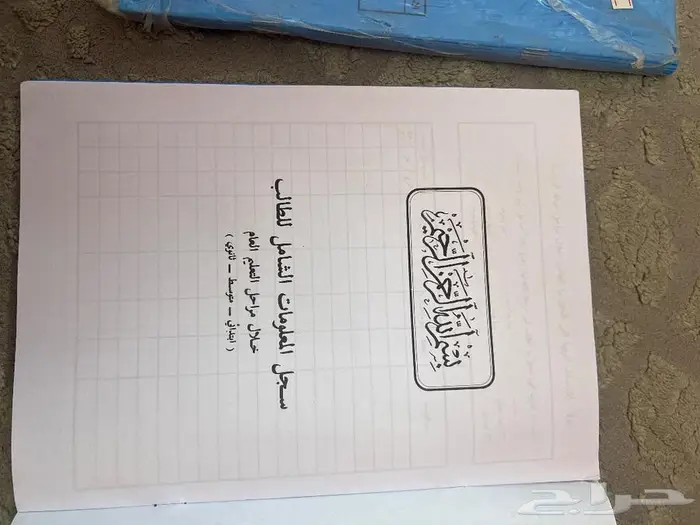 بسم الله الرحمن الرحيم
سجل المعلومات الشامل للطالب
خلال مراحل التعليم العام
( ابتدائي - متوسط - ثانوي )
حراج